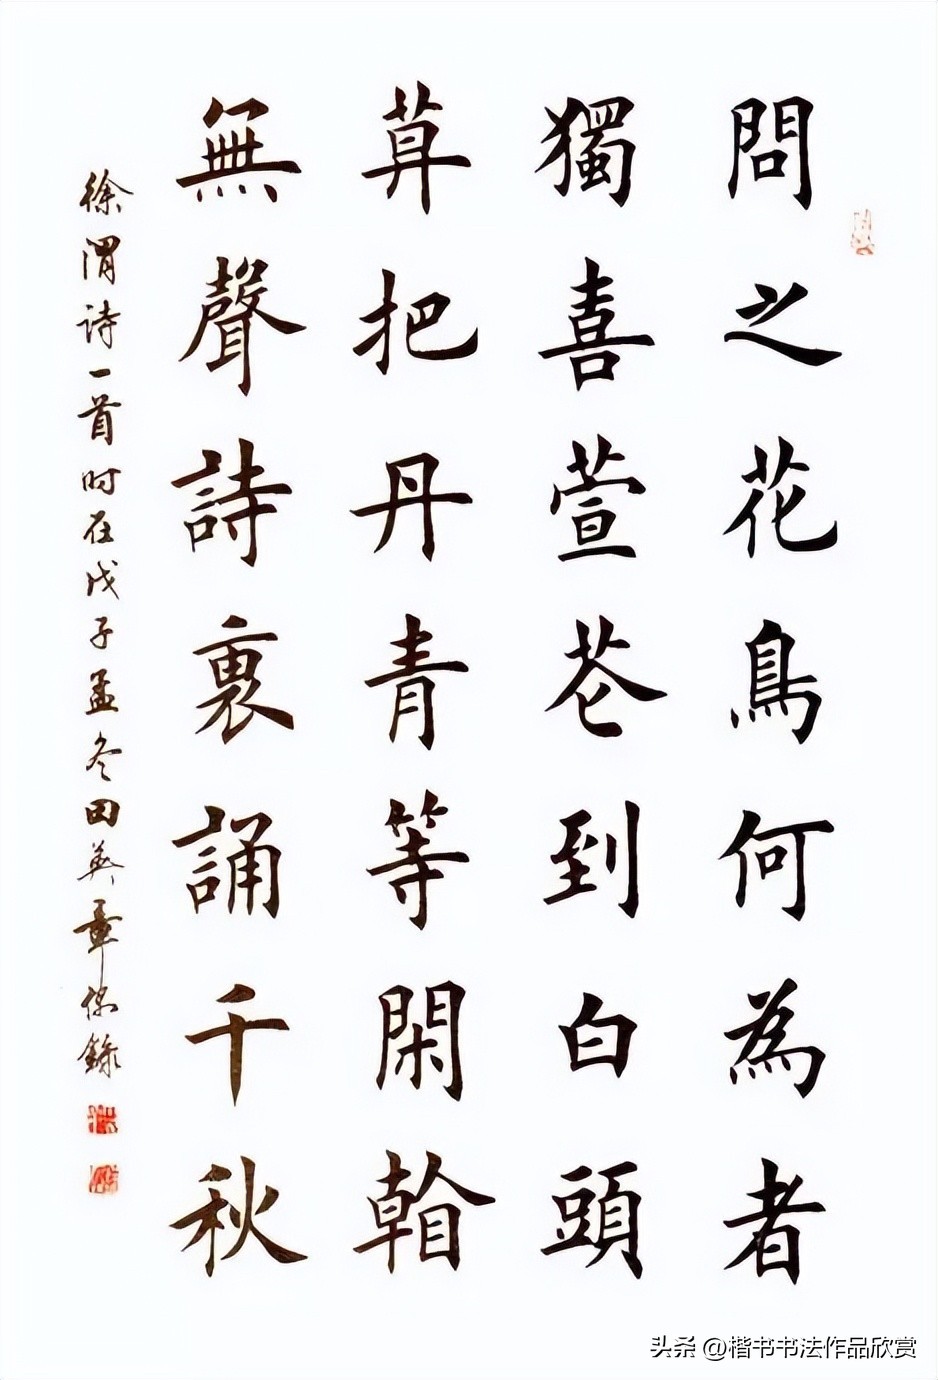 問之花鳥何為者
獨喜萱花到白頭
莫把丹青等閑看
無聲詩裏誦千秋
徐渭詩一首时在戊子孟冬田英章錄
头条 @楷书书法作品欣赏